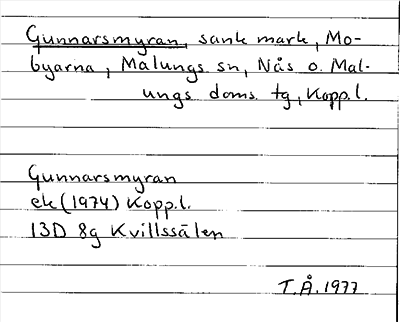 Gunnarsmyran, sank mark, Mo-
byarna, Malungs sn, Nås o. Mal-
ungs doms. tg, Kopp.l.
Gunnarsmyran
ek (1974) Kopp.l.
13D 8g Kvillssälen
T.Å. 1977